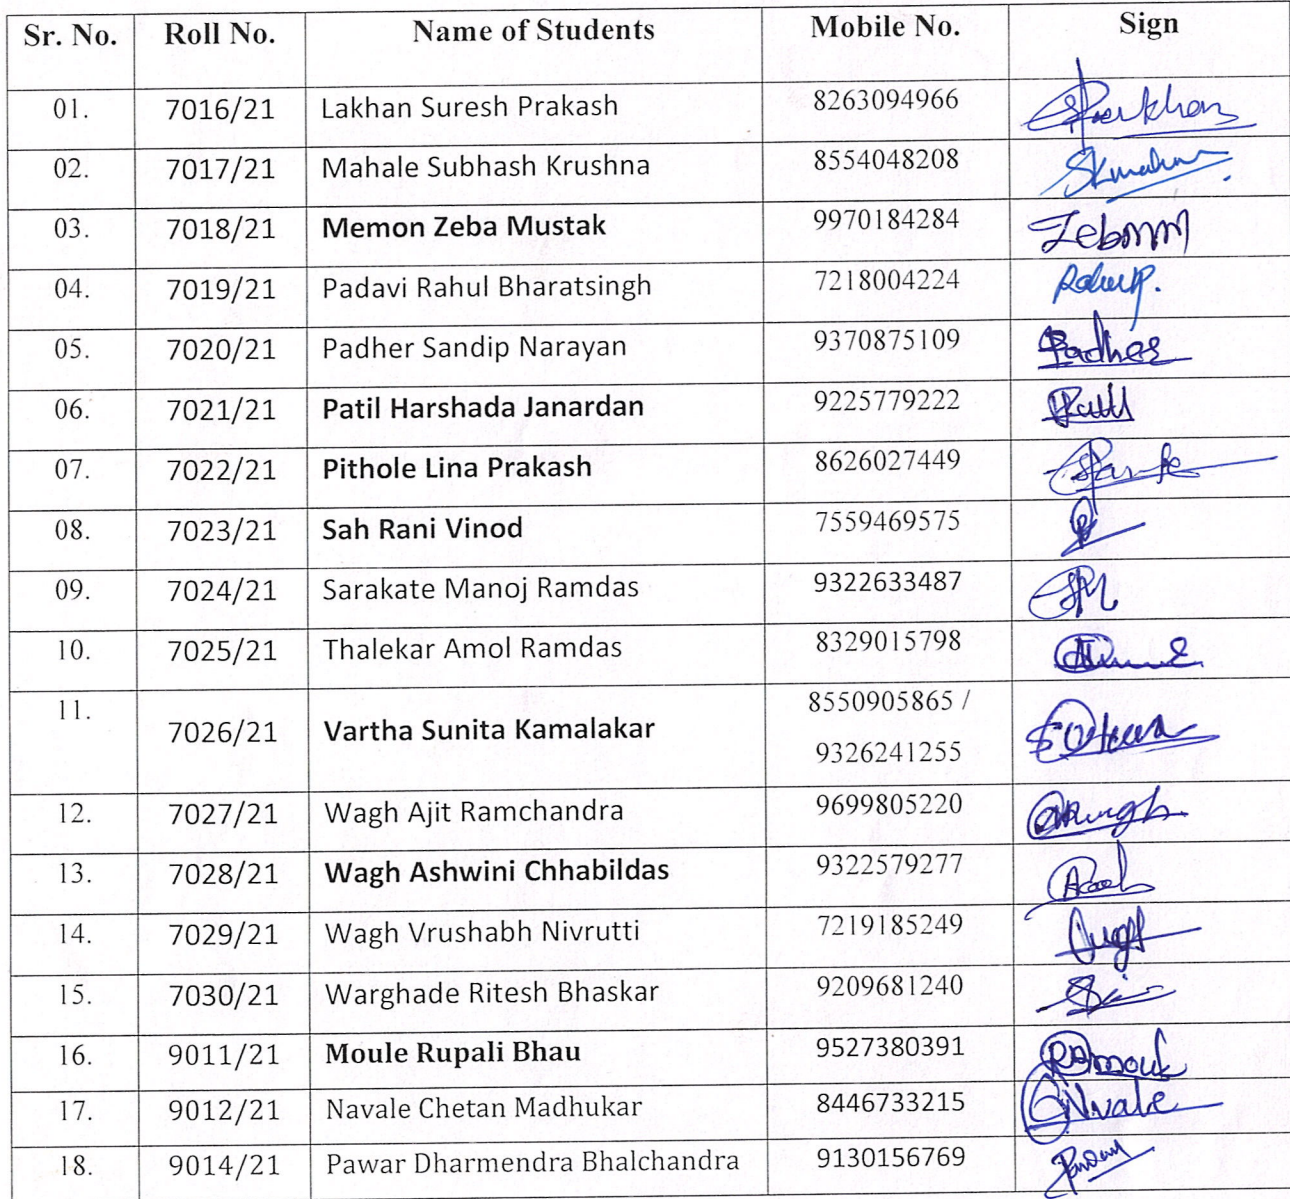 Sr. No. Roll No. Name of Students Mobile No. Sign
01. 7016/21 Lakhan Suresh Prakash 8263094966
02. 7017/21 Mahale Subhash Krushna 8554048208
03. 7018/21 Memon Zeba Mustak 9970184284
04. 7019/21 Padavi Rahul Bharatsingh 7218004224
05. 7020/21 Padher Sandip Narayan 9370875109 Padher
06. 7021/21 Patil Harshada Janardan 9225779222
07. 7022/21 Pithole Lina Prakash 8626027449
08. 7023/21 Sah Rani Vinod 7559469575
09. 7024/21 Sarakate Manoj Ramdas 9322633487
10. 7025/21 Thalekar Amol Ramdas 8329015798
11. 7026/21 Vartha Sunita Kamalakar 8550905865 /
9326241255
12. 7027/21 Wagh Ajit Ramchandra 9699805220
13. 7028/21 Wagh Ashwini Chhabildas 9322579277
14. 7029/21 Wagh Vrushabh Nivrutti 7219185249
15. 7030/21 Warghade Ritesh Bhaskar 9209681240
16. 9011/21 Moule Rupali Bhau 9527380391
17. 9012/21 Navale Chetan Madhukar 8446733215
18. 9014/21 Pawar Dharmendra Bhalchandra 9130156769